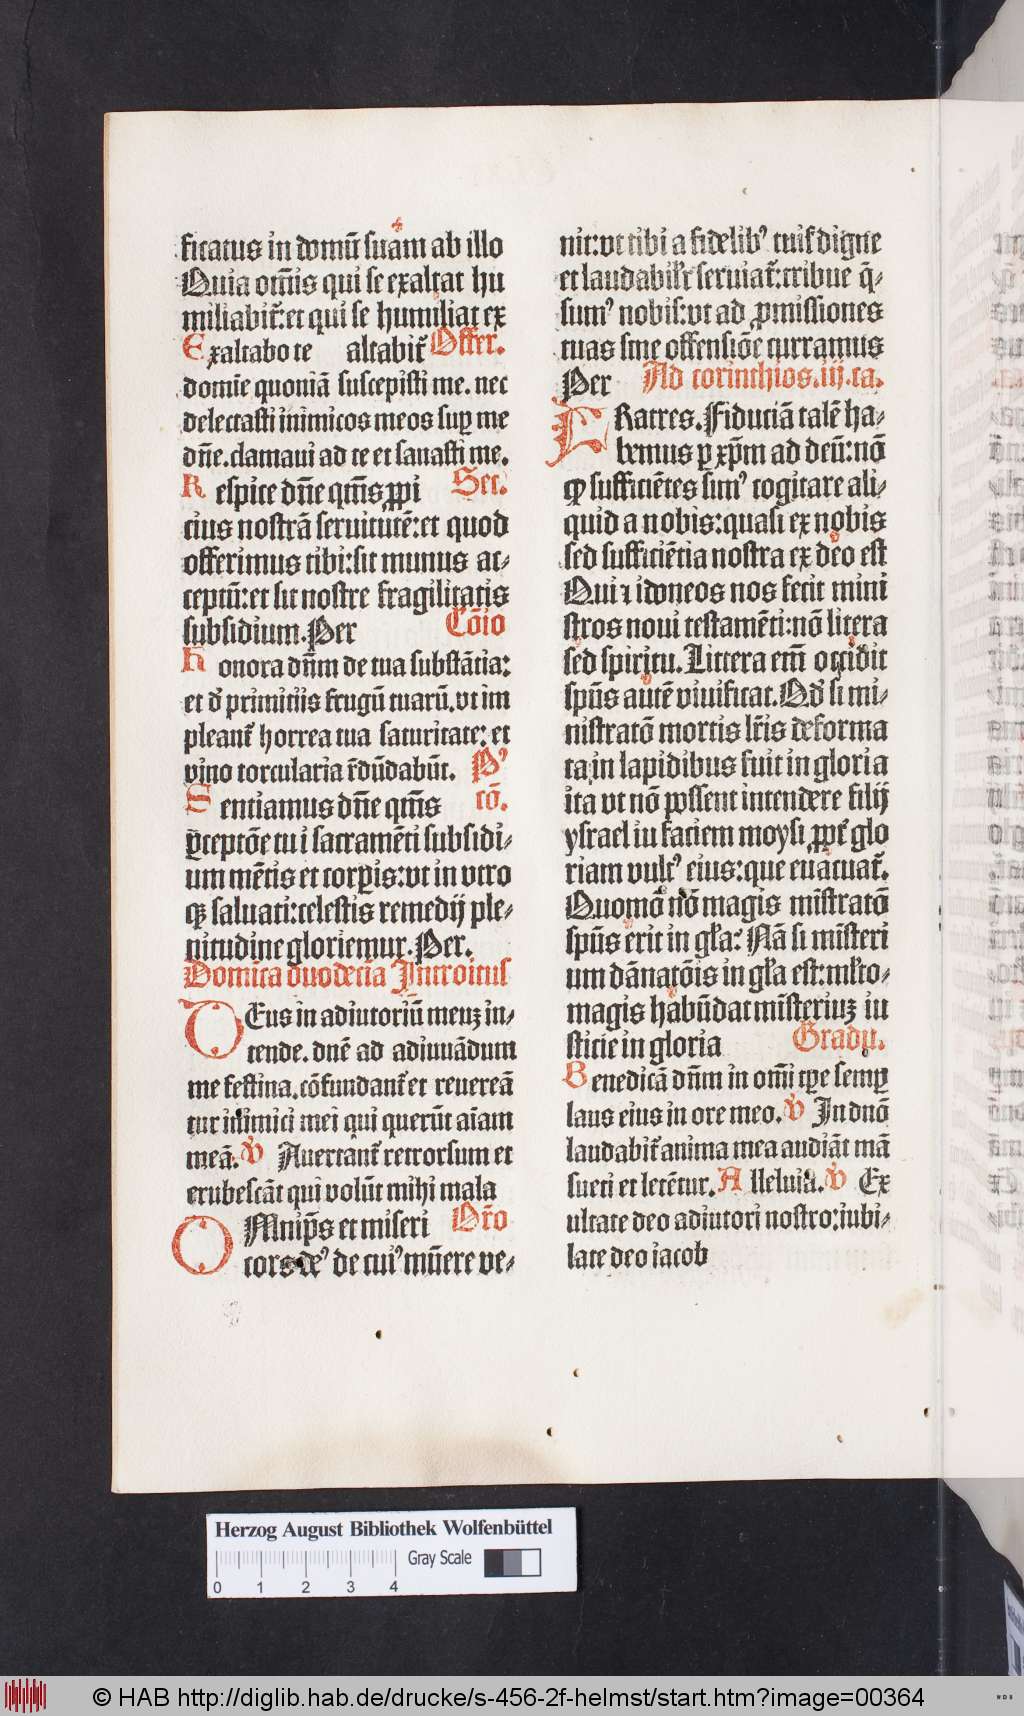 ficatus in domū suam ab illo
Quia om̄is qui se exaltat hu
miliabit̄: et qui se humiliat ex
Exaltabo te altabit̄ Offer.
domīe quoniā suscepisti me. nec
delectasti inimicos meos suꝑ me
dn̄e. clamaui ad te et sanasti me.
Respice dn̄e qm̄s ꝓpi Secr.
cius nostrā seruitutē: et quod
offerimus tibi: sit munus ac⸗
ceptū: et sit nostre fragilitatis
subsidium. Per Cōio
Honora dn̄m de tua substātia:
et đ primitiis frugū tuarū. vt im
pleant̄ horrea tua saturitate: et
vino torcularia r̄dūdabūt. Pꝰ
Sentiamus dn̄e qm̄s cō.
ꝑceptōe tui sacramēti subsidi⸗
um mētis et corꝑis: vt in vtro
qꝫ saluati: celestis remedij ple⸗
nitudine gloriemur. Per.
Domīca duodecīa Introitus
DEus in adiutoriū meuꝫ in⸗
tende. dn̄e ad adiuuādum
me festina. cōfundant̄ et reuereā
tur inimici mei qui querūt aīam
meā. V̄ Auertant̄ retrorsum et
erubescāt qui volūt mihi mala
OMnip̄s et miseri Or̄o
cors deꝰ de cuiꝰ mūere ve⸗
nit: vt tibi a fidelibꝰ tuis digne
et laudabilr̄ seruiat̄: tribue q̄⸗
sumꝰ nobis: vt ad ꝓmissiones
tuas sine offensiōe curramus
Per Ad corinthios. iij. ca.
FRatres. Fiduciā talē ha⸗
bemus ꝑ xp̄m ad deū: nō
ꝙ sufficiētes simꝰ cogitare ali⸗
quid a nobis: quasi ex nobis
sed sufficiētia nostra ex deo est
Qui ⁊ idoneos nos fecit mini
stros noui testamēti: nō litera
sed spiritu. Littera em̄ occidit
sp̄us autē viuificat. Qđ si mi⸗
nistratō mortis lr̄is deforma
ta in lapidibus fuit in gloria
ita vt nō possent intendere filij
ysrael in faciem moysi ꝓpt̄ glo
riam vultꝰ eius: que euacuat̄.
Quomō nō magis mīstratō
sp̄us erit in gl̄a: Nā si mīsteri
um dānatōis in gl̄a est: ml̄to⸗
magis habūdat mīsteriuꝫ iu
sticie in gloria Gradu.
Benedicā dn̄m in om̄i tp̄e semꝑ
laus eius in ore meo. V̄ In dn̄o
laudabit̄ anima mea audiāt mā
sueti et letētur. Alleluia. V̄ Ex
ultate deo adiutori nostro: iubi⸗
late deo iacob
Herzog August Bibliothek Wolfenbüttel
Gray Scale
0 1 2 3 4
© HAB http://diglib.hab.de/drucke/s-456-2f-helmst/start.htm?image=00364